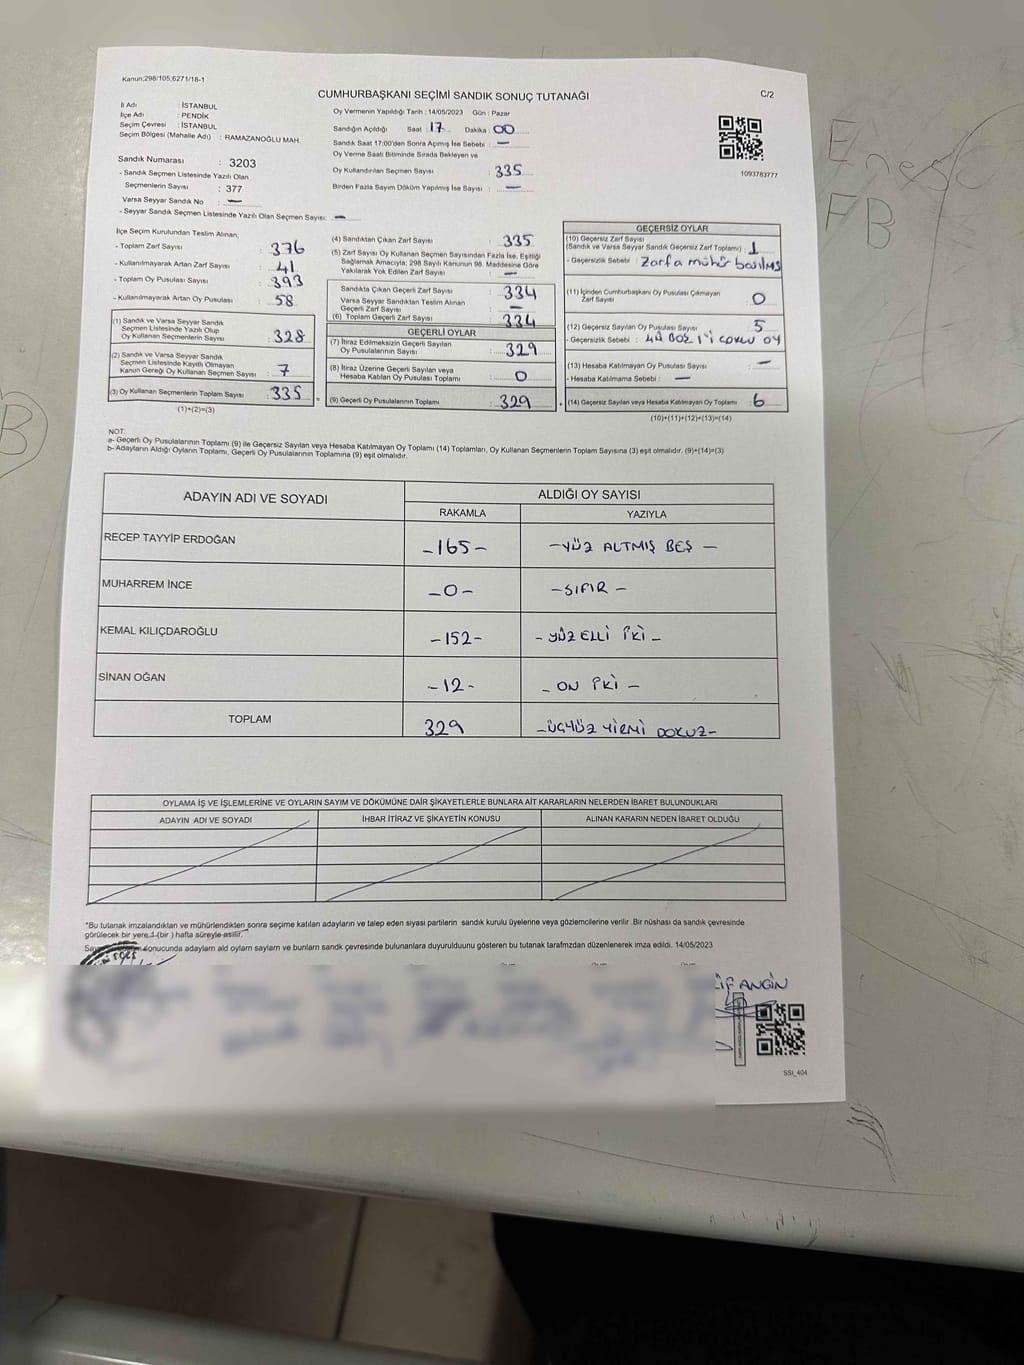 Kanun:298/105,6271/18-1
CUMHURBAŞKANI SEÇİMİ SANDIK SONUÇ TUTANAĞI
C/2
İl Adı : İSTANBUL
İlçe Adı : PENDİK
Seçim Çevresi : İSTANBUL
Seçim Bölgesi (Mahalle Adı) : RAMAZANOĞLU MAH.
Sandık Numarası : 3203
- Sandık Seçmen Listesinde Yazılı Olan
Seçmenlerin Sayısı : 377
Varsa Seyyar Sandık No : —
- Seyyar Sandık Seçmen Listesinde Yazılı Olan Seçmen Sayısı: —
Oy Vermenin Yapıldığı Tarih : 14/05/2023 Gün : Pazar
Sandığın Açıldığı Saat : 17 Dakika : 00
Sandık Saat 17:00'den Sonra Açımış İse Sebebi : —
Oy Verme Saati Bitiminde Sırada Bekleyen ve
Oy Kullandırılan Seçmen Sayısı : 335
Birden Fazla Sayım Döküm Yapılmış İse Sayısı : —
1093783777
İlçe Seçim Kurulundan Teslim Alınan;
- Toplam Zarf Sayısı : 376
- Kullanılmayarak Artan Zarf Sayısı : 41
- Toplam Oy Pusulası Sayısı : 393
- Kullanılmayarak Artan Oy Pusulası : 58
(1) Sandık ve Varsa Seyyar Sandık
Seçmen Listesinde Yazılı Olup
Oy Kullanan Seçmenlerin Sayısı : 328
(2) Sandık ve Varsa Seyyar Sandık
Seçmen Listesinde Kayıtlı Olmayan
Kanun Gereği Oy Kullanan Seçmen Sayısı : 7
(3) Oy Kullanan Seçmenlerin Toplam Sayısı : 335
(1)+(2)=(3)
(4) Sandıktan Çıkan Zarf Sayısı : 335
(5) Zarf Sayısı Oy Kullanan Seçmen Sayısından Fazla İse, Eşitliği
Sağlamak Amacıyla; 298 Sayılı Kanunun 98. Maddesine Göre
Yakılarak Yok Edilen Zarf Sayısı : —
Sandıkta Çıkan Geçerli Zarf Sayısı : 334
Varsa Seyyar Sandıktan Teslim Alınan
Geçerli Zarf Sayısı : —
(6) Toplam Geçerli Zarf Sayısı : 334
GEÇERLİ OYLAR
(7) İtiraz Edilmeksizin Geçerli Sayılan
Oy Pusulalarının Sayısı : 329
(8) İtiraz Üzerine Geçerli Sayılan veya
Hesaba Katılan Oy Pusulası Toplamı : 0
(9) Geçerli Oy Pusulalarının Toplamı : 329
GEÇERSİZ OYLAR
(10) Geçersiz Zarf Sayısı
(Sandık ve Varsa Seyyar Sandık Geçersiz Zarf Toplamı) : 1
- Geçersizlik Sebebi : Zarfa mühür basılmış
(11) İçinden Cumhurbaşkanı Oy Pusulası Çıkmayan
Zarf Sayısı : 0
(12) Geçersiz Sayılan Oy Pusulası Sayısı : 5
- Geçersizlik Sebebi :
(13) Hesaba Katılmayan Oy Pusulası Sayısı : —
- Hesaba Katılmama Sebebi : —
(14) Geçersiz Sayılan veya Hesaba Katılmayan Oy Toplamı : 6
(10)+(11)+(12)+(13)=(14)
NOT:
a- Geçerli Oy Pusulalarının Toplamı (9) ile Geçersiz Sayılan veya Hesaba Katılmayan Oy Toplamı (14) Toplamları, Oy Kullanan Seçmenlerin Toplam Sayısına (3) eşit olmalıdır. (9)+(14)=(3)
b- Adayların Aldığı Oyların Toplamı, Geçerli Oy Pusulalarının Toplamına (9) eşit olmalıdır.
ADAYIN ADI VE SOYADI
ALDIĞI OY SAYISI
RAKAMLA YAZIYLA
RECEP TAYYİP ERDOĞAN -165- -YÜZ ALTMIŞ BEŞ -
MUHARREM İNCE -0- -SIFIR-
KEMAL KILIÇDAROĞLU -152- - YÜZ ELLİ İKİ -
SİNAN OĞAN -12- - ON İKİ -
TOPLAM 329 -ÜÇYÜZ YİRMİ DOKUZ-
OYLAMA İŞ VE İŞLEMLERİNE VE OYLARIN SAYIM VE DÖKÜMÜNE DAİR ŞİKAYETLERLE BUNLARA AİT KARARLARIN NELERDEN İBARET BULUNDUKLARI
ADAYIN ADI VE SOYADI
İHBAR İTİRAZ VE ŞİKAYETİN KONUSU
ALINAN KARARIN NEDEN İBARET OLDUĞU
*Bu tutanak imzalandıktan ve mühürlendikten sonra seçime katılan adayların ve talep eden siyasi partilerin sandık kurulu üyelerine veya gözlemcilerine verilir .Bir nüshası da sandık çevresinde
görülecek bir yere 1 (bir ) hafta süreyle asılır.
sonucunda adayların ald oyların sayların ve bunların sandk çevresinde bulunanlara duyurulduunu gösteren bu tutanak tarafmzdan düzenlenerek imza edildi. 14/05/2023
ANGİN
SSI_404
Enes
FB
B